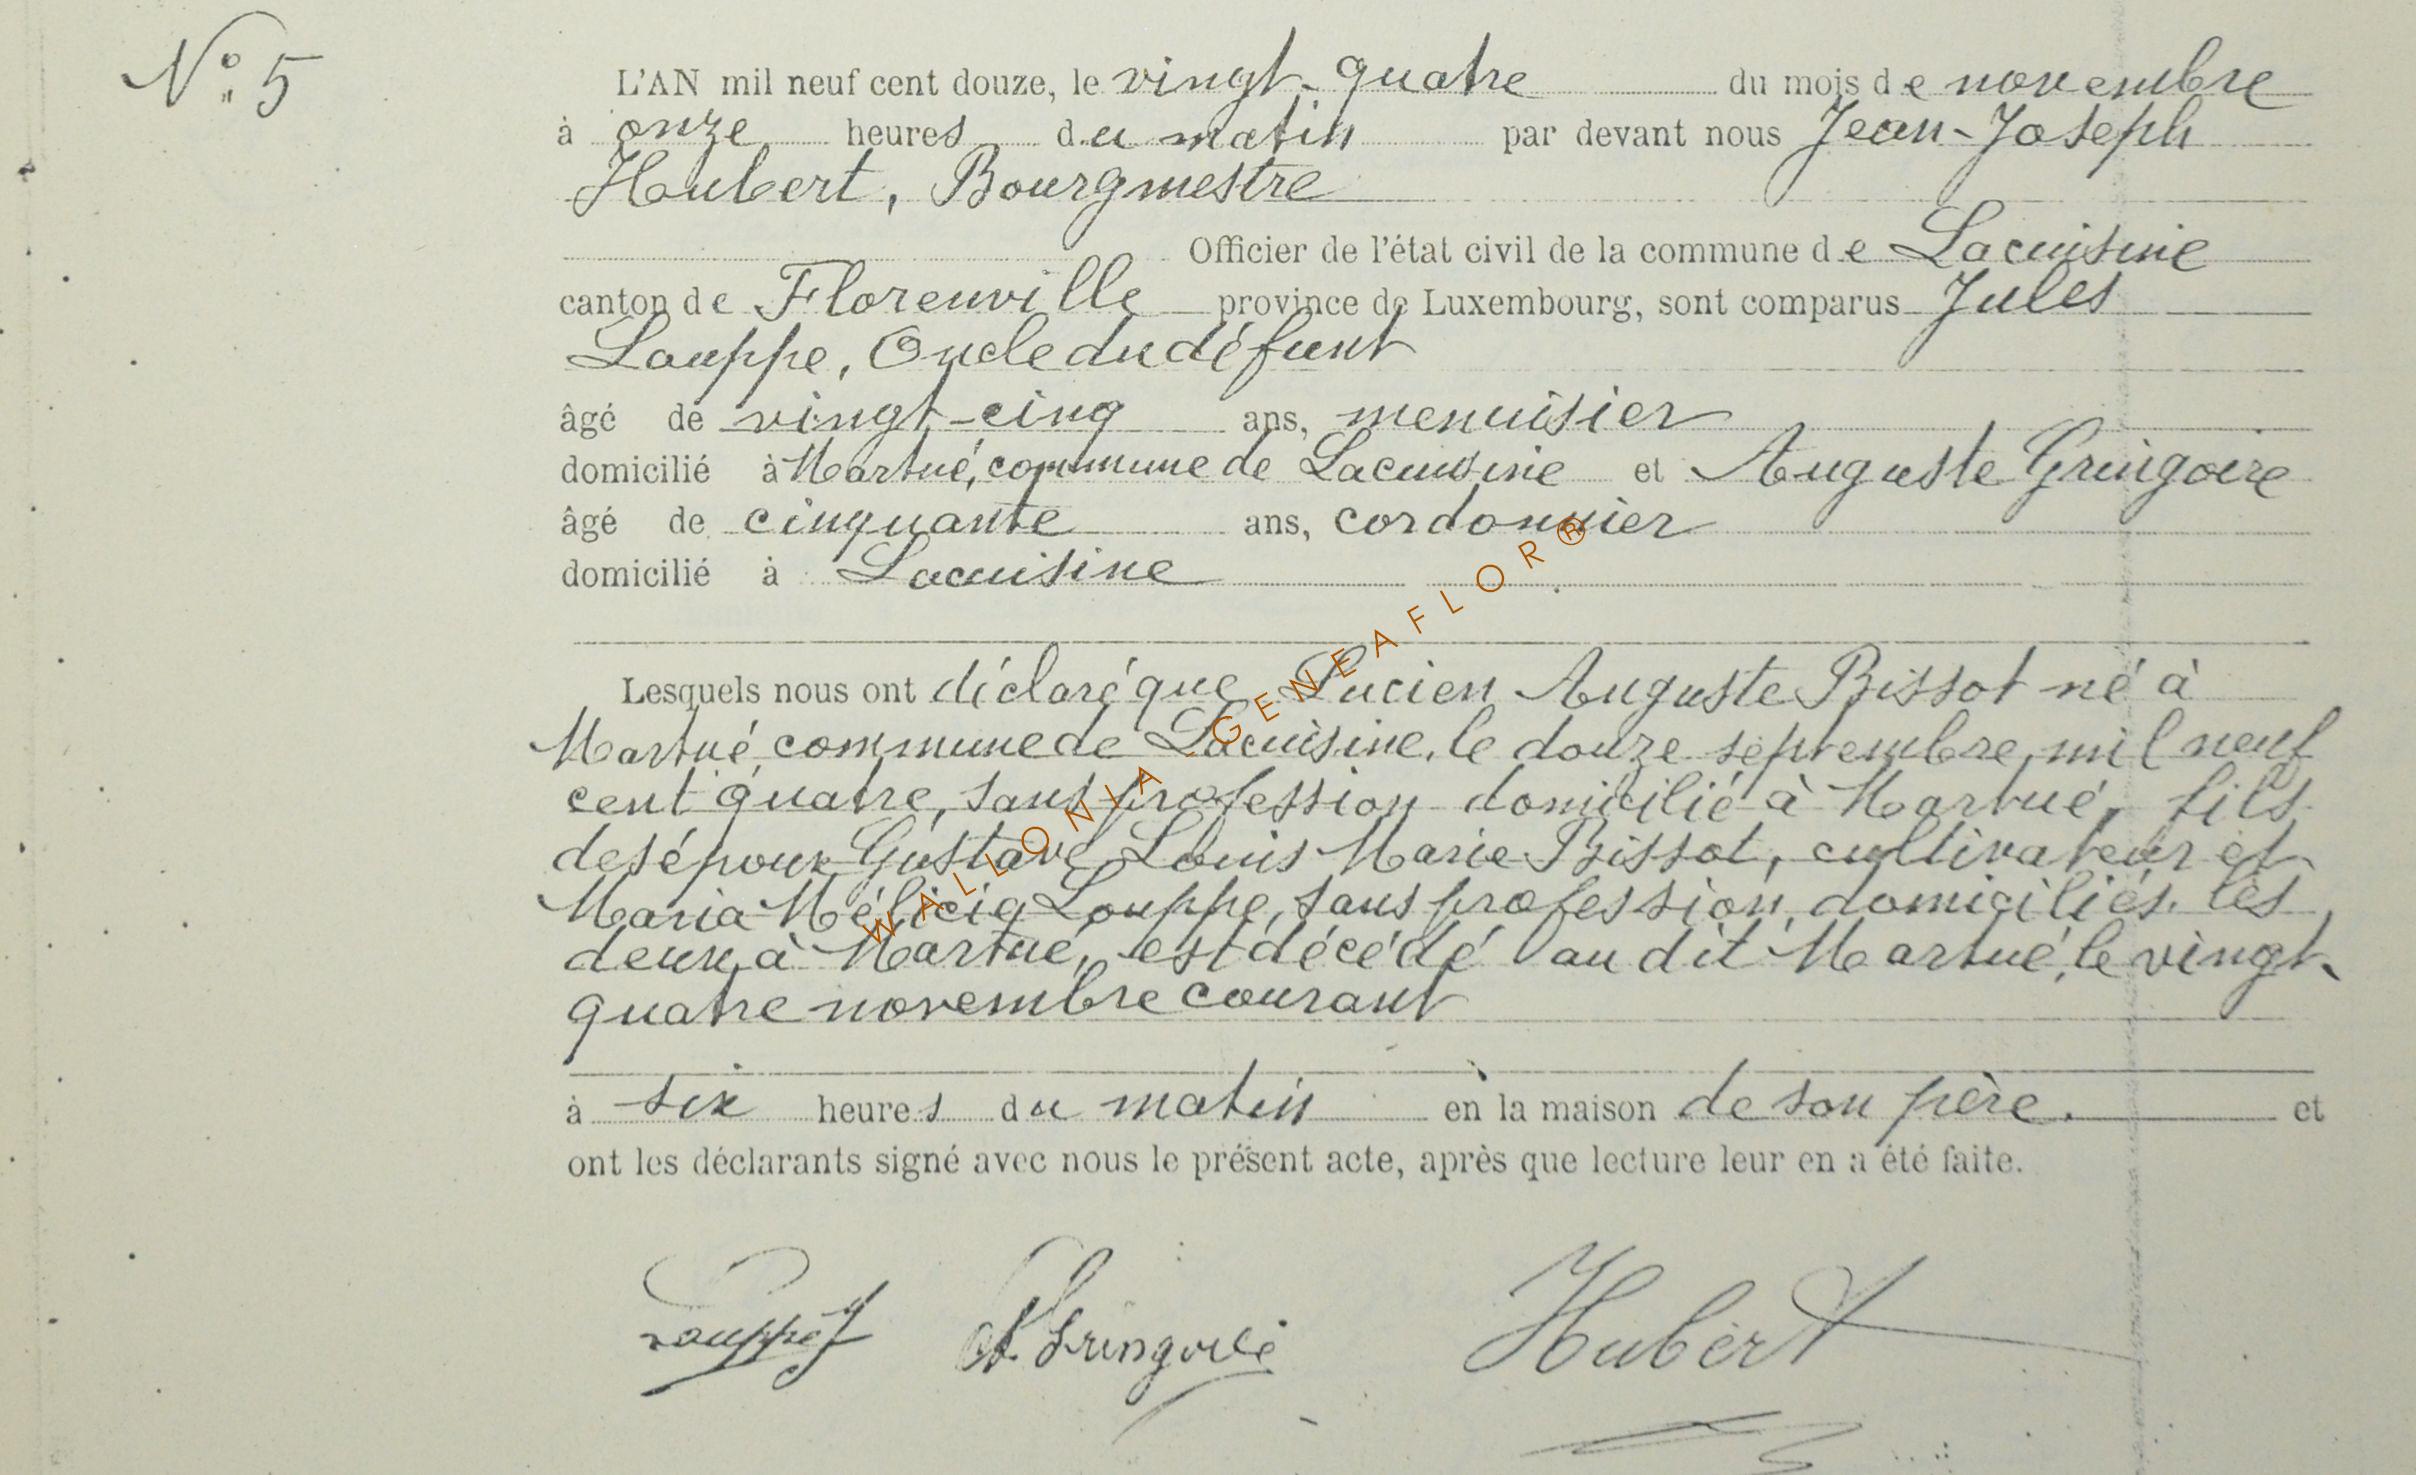 N° 5
L'AN mil neuf cent douze, le vingt-quatre du mois de novembre
à onze heures du matin par devant nous Jean-Joseph
Hubert, Bourgmestre
Officier de l'état civil de la commune de Lacuisine
canton de Florenville province de Luxembourg, sont comparus Jules
Louppe, Oncle du défunt
âgé de vingt-cinq ans, menuisier
domicilié à Martué, commune de Lacuisine et Auguste Gringoire
âgé de cinquante ans, cordonnier
domicilié à Lacuisine
Lesquels nous ont déclaré que Lucien Auguste Bissot né à
Martué, commune de Lacuisine, le douze septembre mil neuf
cent quatre, sans profession domicilié à Martué, fils
des époux Gustave Louis Marie Bissot, cultivateur et
Maria Mélicia Louppe, sans profession, domiciliés les
deux à Martué, est décédé au dit Martué, le vingt-
quatre novembre courant
à six heures du matin en la maison de son père. et
ont les déclarants signé avec nous le présent acte, après que lecture leur en a été faite.
Louppe J A Gringoire Hubert
WALLONIA - GENEAFLOR®